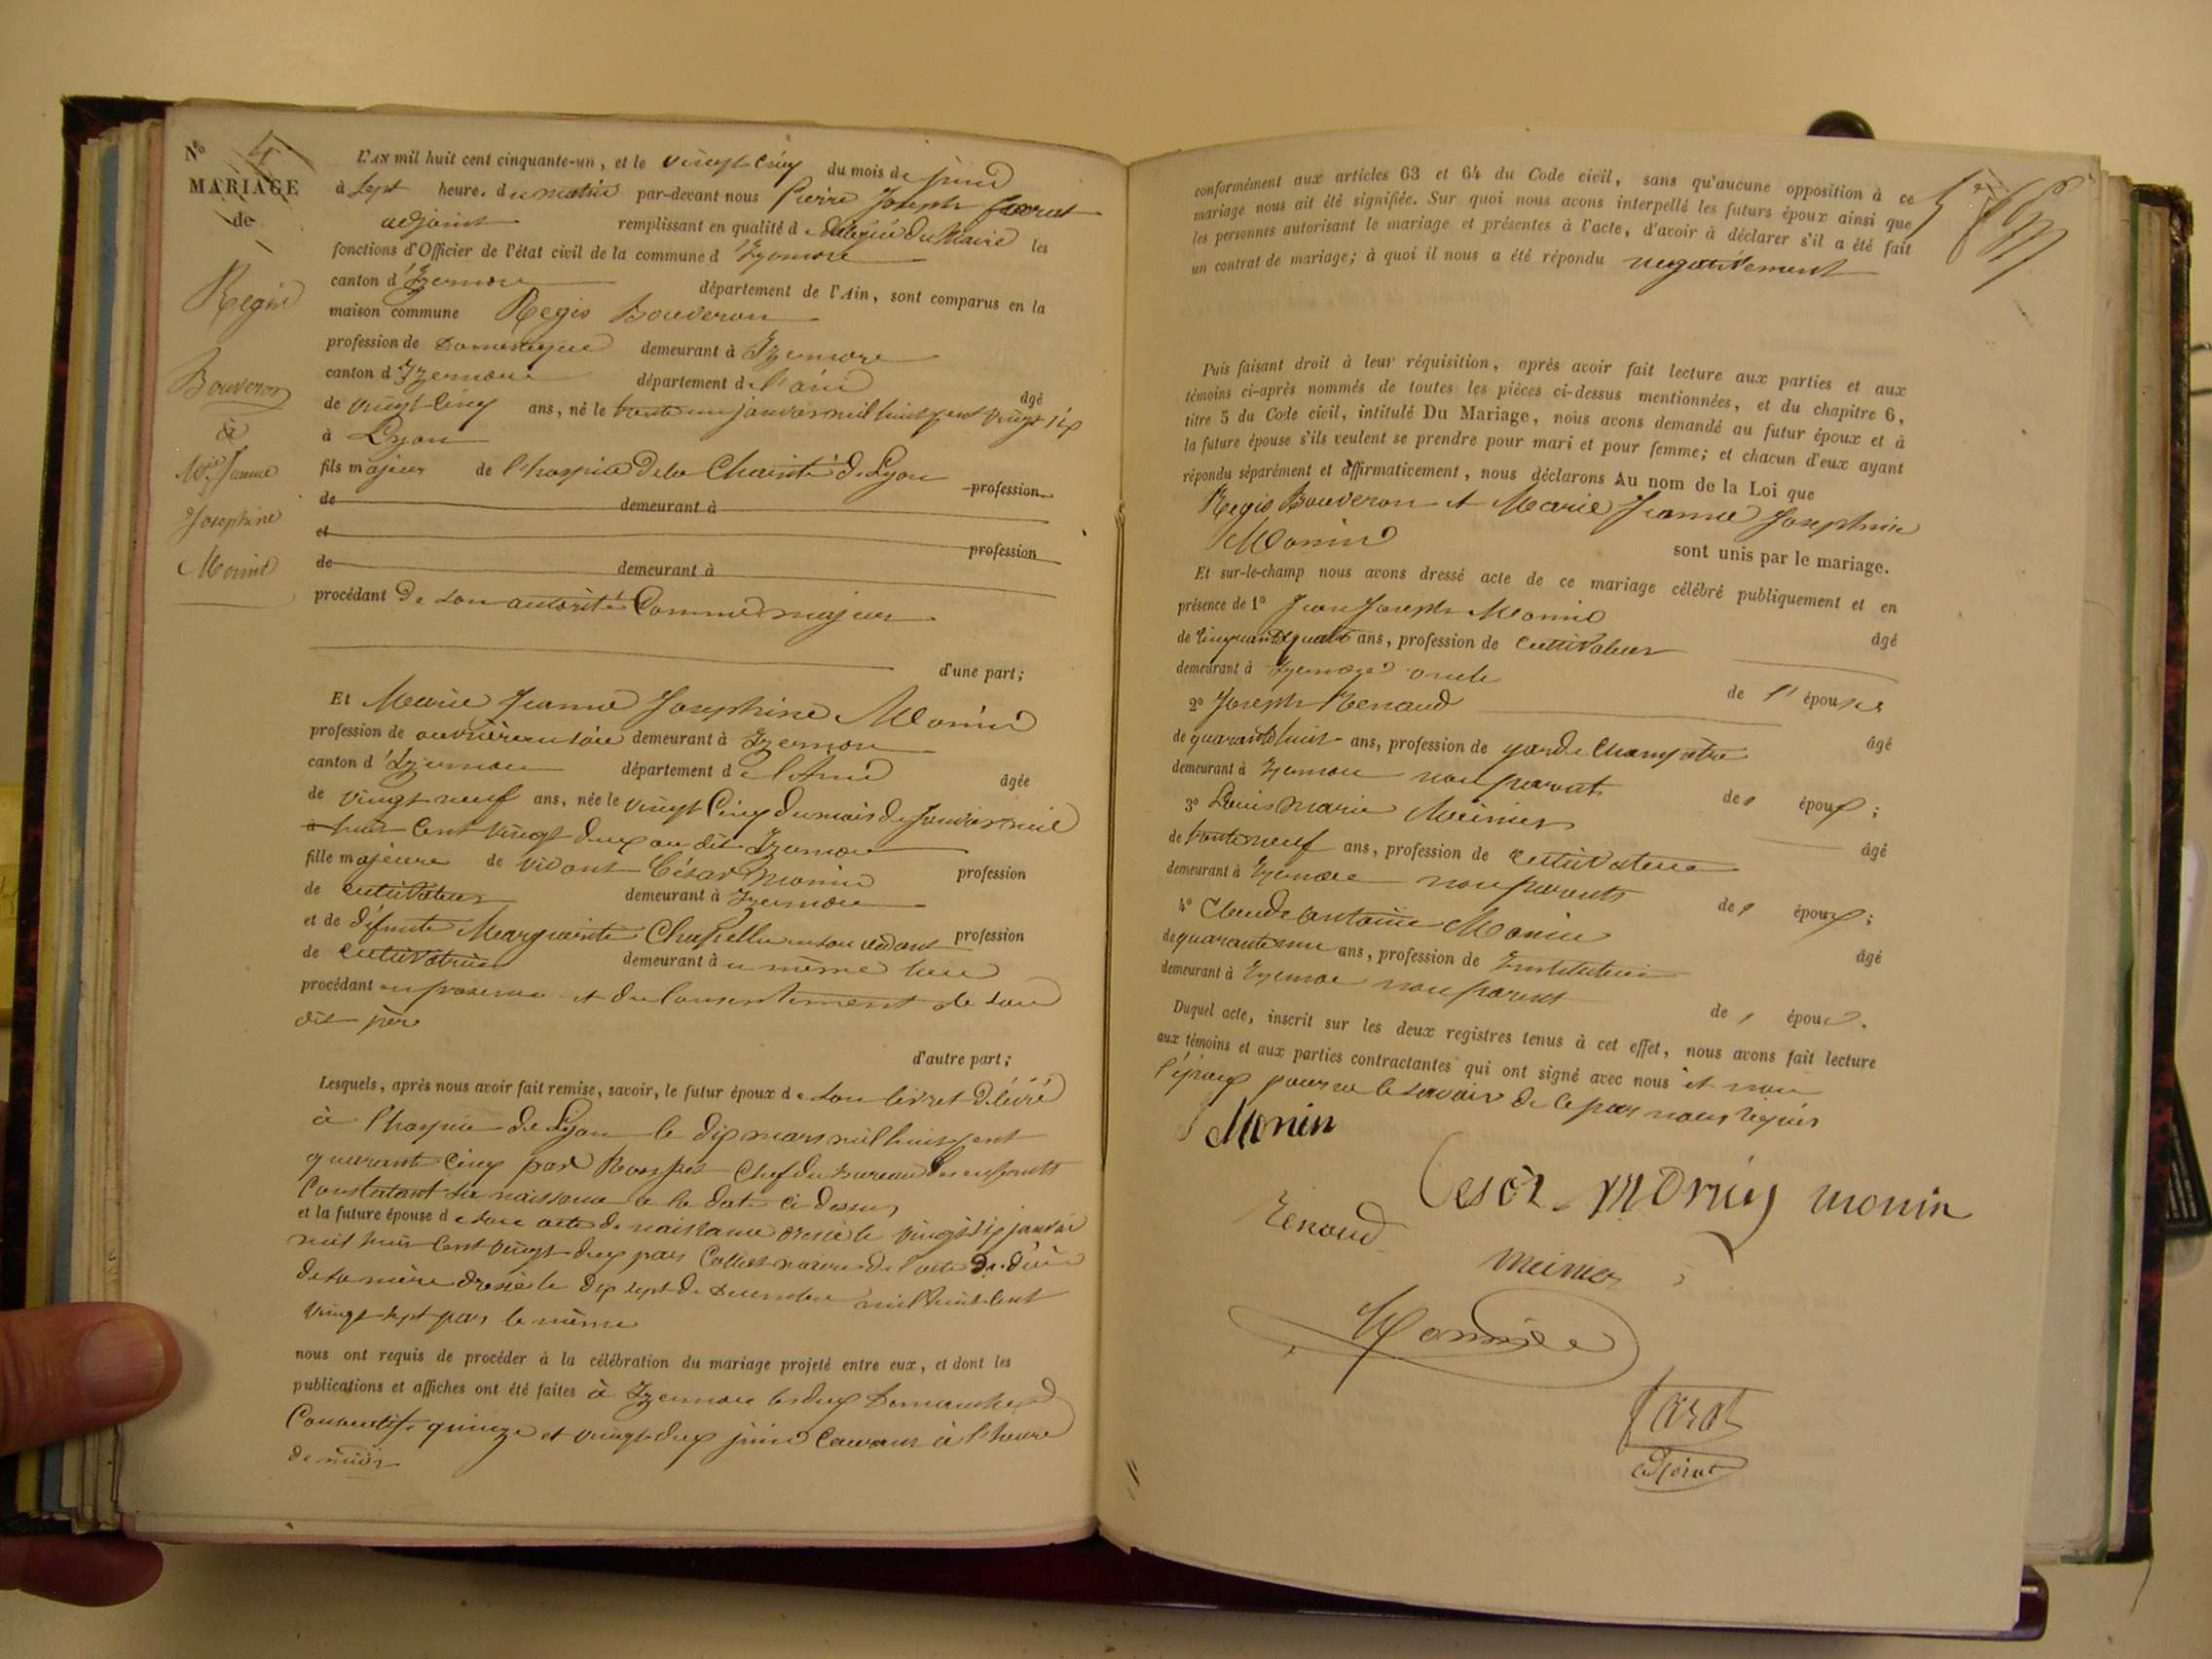 N° 4
MARIAGE
de
Regis
Bouveron
à
Mie Jeanne
Josephine
Monin
L'AN mil huit cent cinquante-un, et le vingt cinq du mois de juin
à sept heure. du matin par-devant nous Pierre Joseph favrat
adjoint remplissant en qualité de délégué du Maire les
fonctions d'Officier de l'état civil de la commune d'Izernore
canton d'Izernore département de l'Ain, sont comparus en la
maison commune Regis Bouveron
profession de domestique demeurant à Izernore
canton d'Izernore département de l'ain âgé
de vingt cinq ans, né le trente un janvier mil huit cent vingt six
à Lyon
fils majeur de l'hospice de la Charité de Lyon profession
de demeurant à
et profession
de demeurant à
procédant de son autorité Comme majeur
d'une part;
Et Marie Jeanne Josephine Monin
profession de ouvrière en soie demeurant à Izernore
canton d'Izernore département de l'Ain âgée
de vingt neuf ans, née le vingt Cinq du mois de Janvier mil
à huit Cent vingt deux au dit Izernore
fille majeure de vivant César Monin profession
de cultivateur demeurant à Izernore
et de défunte Marguerite Chapelle en son vivant profession
de cultivatrice demeurant au même lieu
procédant en présence et du Consentement de son
dit père
d'autre part;
Lesquels, après nous avoir fait remise, savoir, le futur époux de son livret délivré
à l'hospice de Lyon le dix mars mil huit cent
quarante Cinq par Chef du bureau des enfants
Constatant sa naissance a la date ci dessus
et la future épouse de son acte de naissance dressé le vingt six janvier
mil huit Cent vingt deux par Collet maire de l'acte de décès
de sa mère dressé le dix sept de decembre mil huit Cent
vingt sept par le même
nous ont requis de procéder à la célébration du mariage projeté entre eux, et dont les
publications et affiches ont été faites à Izernore les deux Dimanches
Consecutifs quinze et vingt deux juin Courant à l'heure
de midi
5e
conformément aux articles 63 et 64 du Code civil, sans qu'aucune opposition à ce
mariage nous ait été signifiée. Sur quoi nous avons interpellé les futurs époux ainsi que
les personnes autorisant le mariage et présentes à l'acte, d'avoir à déclarer s'il a été fait
un contrat de mariage; à quoi il nous a été répondu negativement
Puis faisant droit à leur réquisition, après avoir fait lecture aux parties et aux
témoins ci-après nommés de toutes les pièces ci-dessus mentionnées, et du chapitre 6,
titre 5 du Code civil, intitulé Du Mariage, nous avons demandé au futur époux et à
la future épouse s'ils veulent se prendre pour mari et pour femme; et chacun d'eux ayant
répondu séparément et affirmativement, nous déclarons Au nom de la Loi que
Regis Bouveron et Marie Jeanne Josephine
Monin sont unis par le mariage.
Et sur-le-champ nous avons dressé acte de ce mariage célébré publiquement et en
présence de 1° Jean Joseph Monin âgé
de Cinquante quatre ans, profession de cultivateur
demeurant à Izernore oncle de l'épouse
2° Joseph Renaud âgé
de quarante huit ans, profession de garde Champêtre
demeurant à Izernore non parent des époux;
3° Louis Marie Meinier âgé
de trente neuf ans, profession de cultivateur
demeurant à Izernore non parents des époux;
4° Claude Antoine Monin âgé
de quarante un ans, profession de Instituteur
demeurant à Izernore non parent des époux.
Duquel acte, inscrit sur les deux registres tenus à cet effet, nous avons fait lecture
aux témoins et aux parties contractantes qui ont signé avec nous et non
l'époux pour ne le savoir de ce par nous requis
J Monin
Cesar Monin monin
Renaud
Meinier
Monin
favrat
adjoint